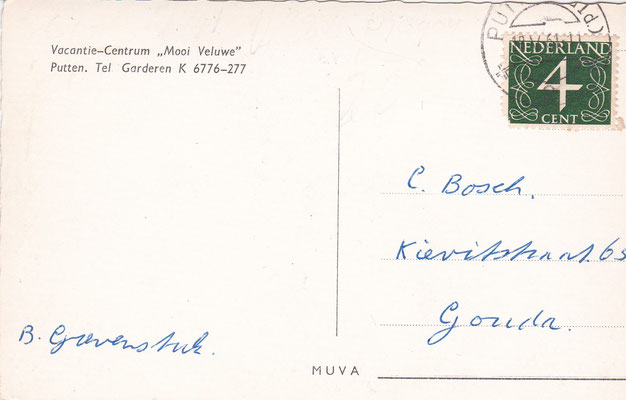 Vacantie–Centrum „Mooi Veluwe”
Putten. Tel. Garderen K 6776–277
NEDERLAND
4
CENT
C. Bosch.
Kievitstraat 65
Gouda.
B. Gravenstuk.
MUVA